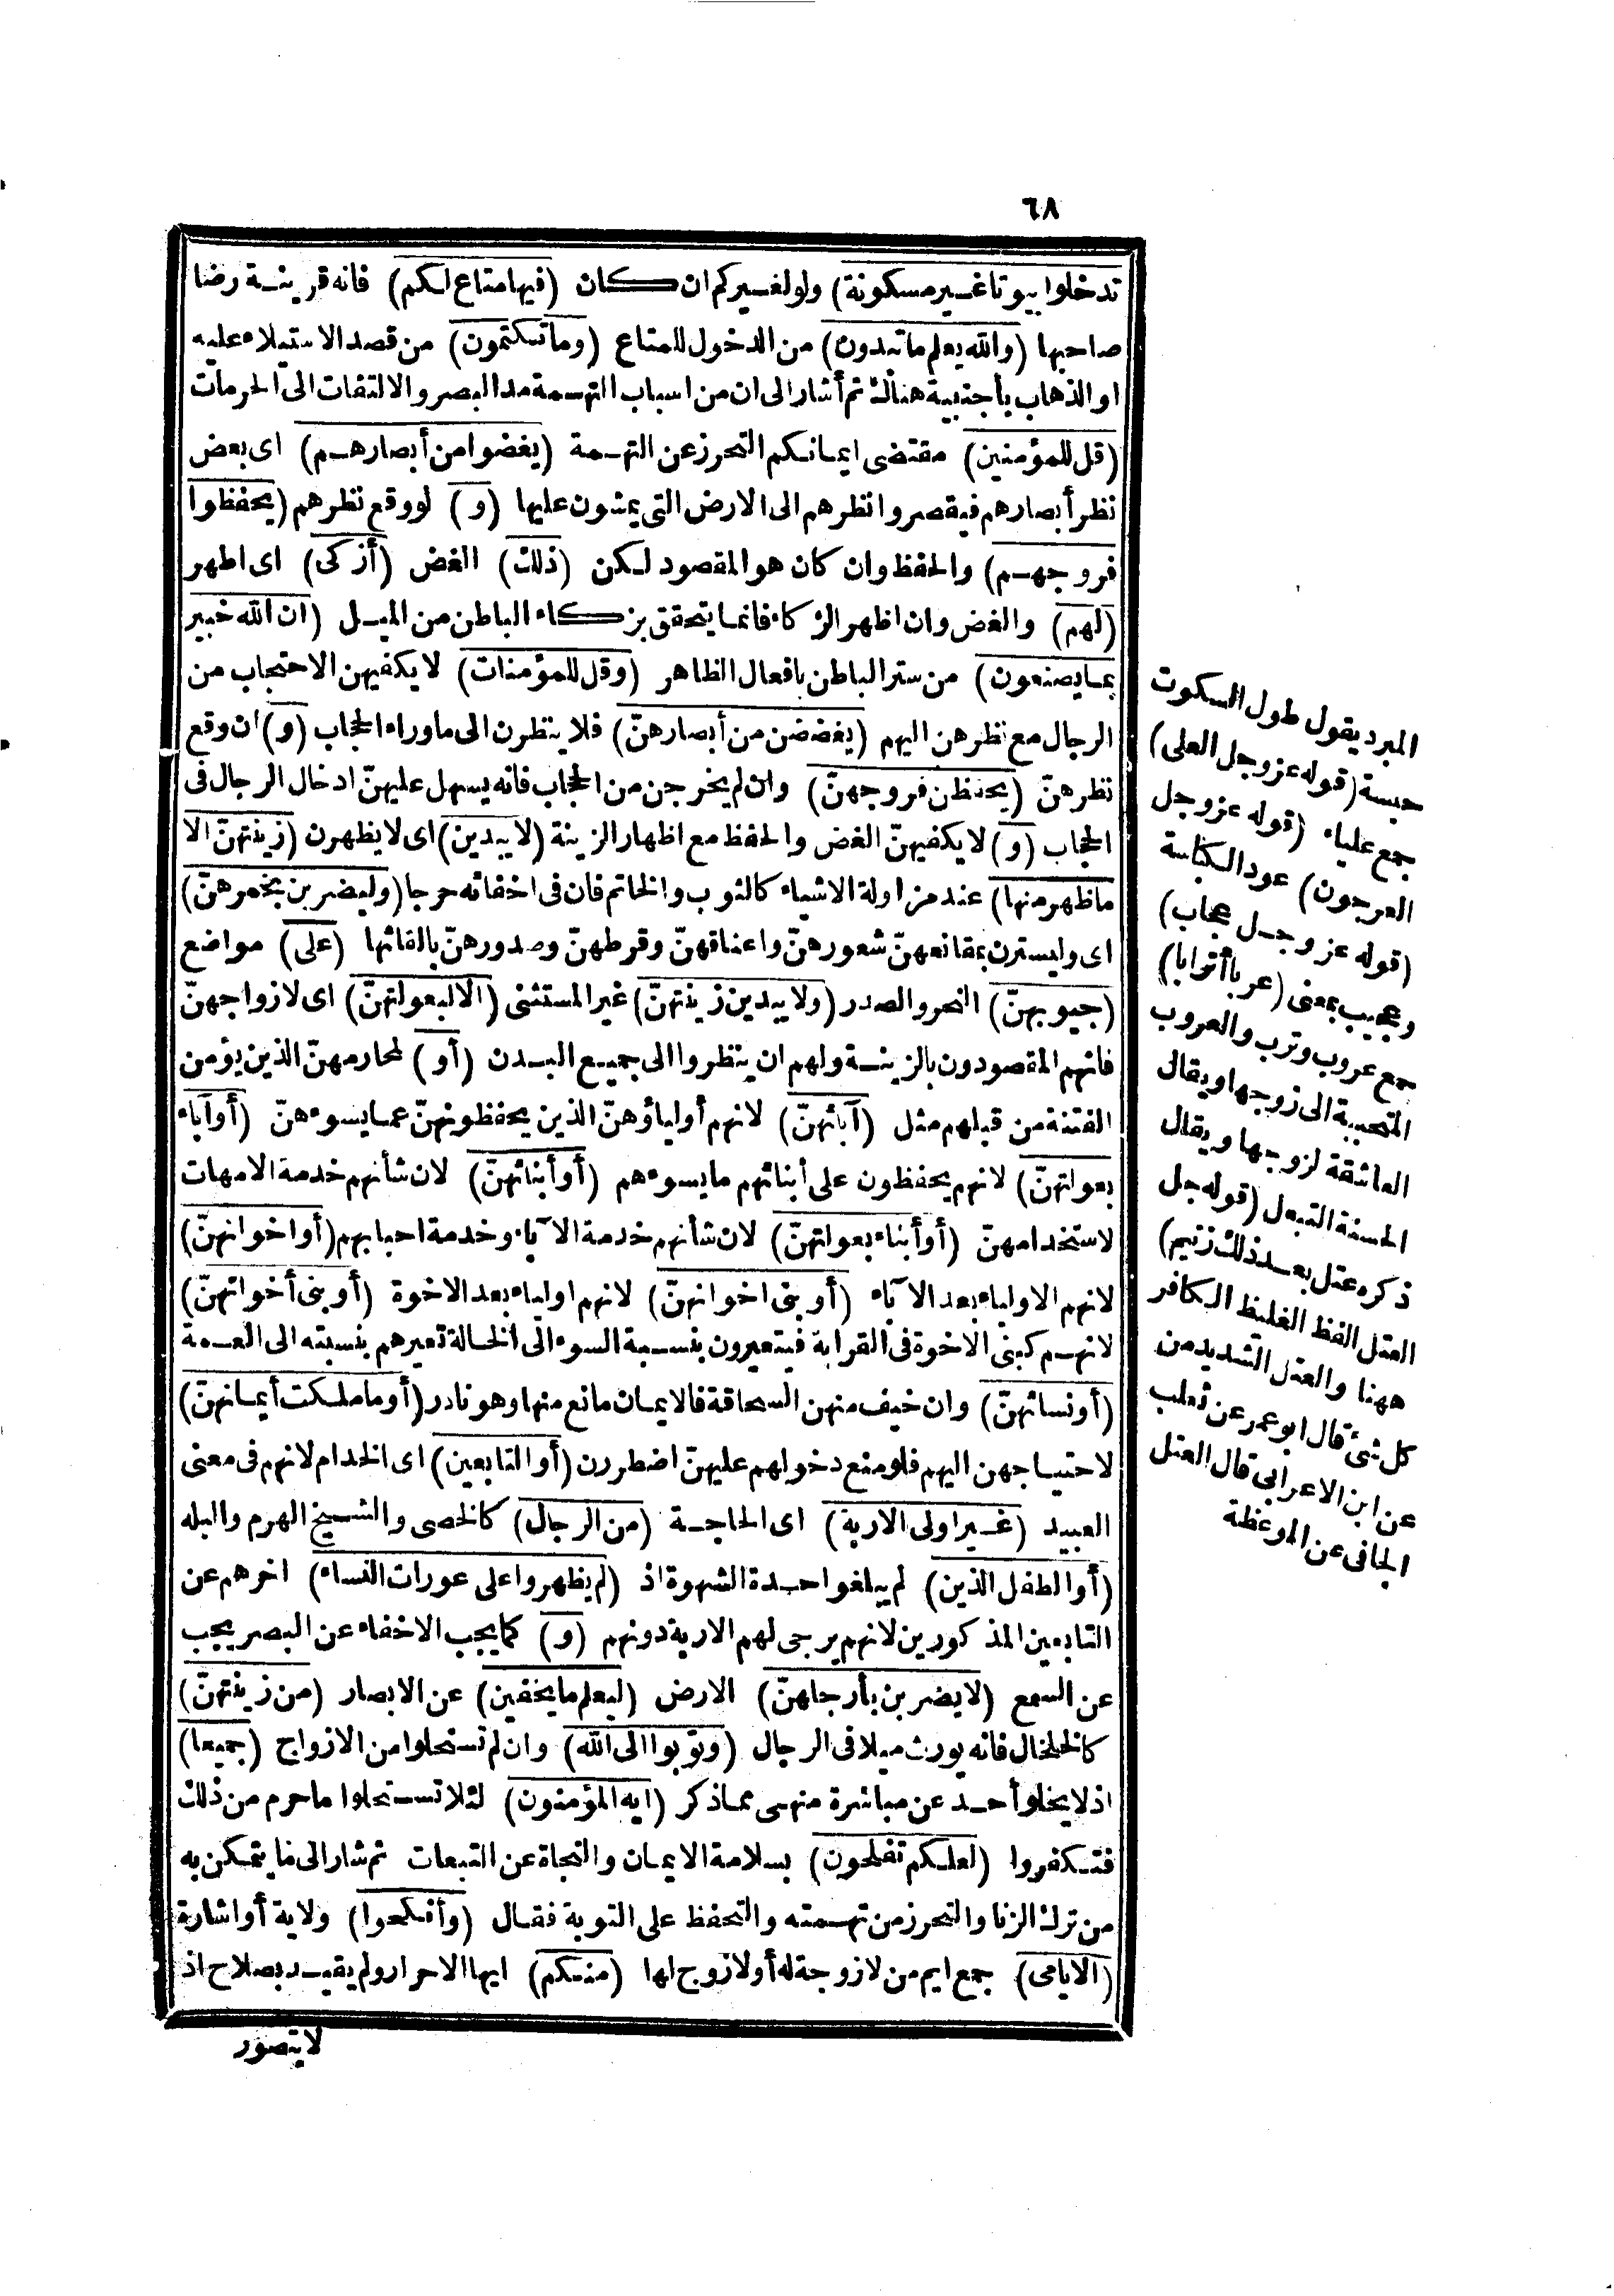 ٦٨
تدخلوا بيوتا غير مسكونة) ولو لغيركم ان كان (فيها متاع لكم) فانه قرينة رضا
صاحبها (والله يعلم ما تبدون) من الدخول للمتاع (وما تكتمون) من قصد الاستيلاء عليه
او الذهاب بأجنبية هناك ثم أشار الى ان من اسباب التهمة مد البصر والالتفات الى الحرمات
(قل للمؤمنين) مقتضى ايمانكم التحرز عن التهمة (يغضوا من أبصارهم) اى بعض
نظر أبصارهم فيقصروا نظرهم الى الارض التى يمشون عليها (و) لو وقع نظرهم (يحفظوا
فروجهم) والحفظ وان كان هو المقصود لكن (ذلك) الغض (أزكى) اى اطهر
(لهم) والغض وان اظهر الزكاء فانما يتحقق بزكاء الباطن من الميل (ان الله خبير
بما يصنعون) من ستر الباطن بافعال الظاهر (وقل للمؤمنات) لا يكفيهن الاحتجاب من
الرجال مع نظرهن اليهم (يغضضن من أبصارهنّ) فلا ينظرن الى ما وراء الحجاب (و) ان وقع
نظرهنّ (يحفظن فروجهنّ) وان لم يخرجن من الحجاب فانه يسهل عليهنّ ادخال الرجال فى
الحجاب (و) لا يكفيهنّ الغض والحفظ مع اظهار الزينة (لا يبدين) اى لا يظهرن (زينتهنّ الا
ما ظهر منها) عند مزاولة الاشياء كالثوب والخاتم فان فى اخفائه حرجا (وليضربن بخمرهنّ)
اى وليسترن بمقانعهنّ شعورهنّ واعناقهنّ وقرطهنّ وصدورهنّ بالقائها (على) مواضع
(جيوبهنّ) النحر والصدر (ولا يبدين زينتهنّ) غير المستثنى (الا لبعولتهنّ) اى لازواجهنّ
فانهم المقصودون بالزينة ولهم ان ينظروا الى جميع البدن (أو) لمحارمهنّ الذين يؤمن
الفتنة من قبلهم مثل (آبائهنّ) لانهم أولياؤهنّ الذين يحفظونهنّ عما يسوءهنّ (أو آباء
بعولتهنّ) لانهم يحفظون على أبنائهم ما يسوءهم (أو أبنائهنّ) لان شأنهم خدمة الامهات
لاستخدامهنّ (أو أبناء بعولتهنّ) لان شأنهم خدمة الآباء وخدمة احبابهم (أو اخوانهنّ)
لانهم الاولياء بعد الآباء (أو بنى اخوانهنّ) لانهم اولياء بعد الاخوة (أو بنى أخواتهنّ)
لانهم كبنى الاخوة فى القرابة فيتعيرون بنسبة السوء الى الخالة تعيرهم بنسبته الى العمة
(أو نسائهنّ) وان خيف منهن السحاقة فالايمان مانع منها وهو نادر (أو ما ملكت أيمانهنّ)
لاحتياجهن اليهم فلو منع دخولهم عليهنّ اضطررن (أو التابعين) اى الخدام لانهم فى معنى
العبيد (غير اولى الاربة) اى الحاجة (من الرجال) كالخصى والشيخ الهرم والبله
(أو الطفل الذين) لم يبلغوا حد الشهوة اذ (لم يظهروا على عورات النساء) اخرهم عن
التابعين المذكورين لانهم يرجى لهم الاربة دونهم (و) كما يجب الاخفاء عن البصر يجب
عن السمع (لا يضربن بأرجلهنّ) الارض (ليعلم ما يخفين) عن الابصار (من زينتهنّ)
كالخلخال فانه يورث ميلا فى الرجال (وتوبوا الى الله) وان لم تستحلوا من الازواج (جميعا)
اذ لا يخلو أحد عن مباشرة منهى مما ذكر (ايه المؤمنون) لئلا تستحلوا ما حرم من ذلك
فتكفروا (لعلكم تفلحون) بسلامة الايمان والنجاة عن التبعات ثم شار الى ما يتمكن به
من ترك الزنا والتحرز من تهمته والتحفظ على التوبة فقال (وأنكحوا) ولاية أو اشارة
(الايامى) جمع ايم من لا زوجة له أو لا زوج لها (منكم) ايها الاحرار ولم يقيد بصلاح اذ
لا يتصور
المبرد يقول طول السكوت
حبسة (قوله عز وجل العلى)
جمع علياء (قوله عز وجل
العرجون) عود الكباسة
(قوله عز وجل عجاب)
وعجيب بمعنى (عربا أترابا)
جمع عروب وترب والعروب
المتحببة الى زوجها ويقال
العاشقة لزوجها ويقال
الحسنة التبعل (قوله جل
ذكره عتل بعد ذلك زنيم)
العتل الفظ الغليظ الكافر
ههنا والعتل الشديد من
كل شئ قال ابو عمر عن ثعلب
عن ابن الاعرابى قال العتل
الجافى عن الموعظة